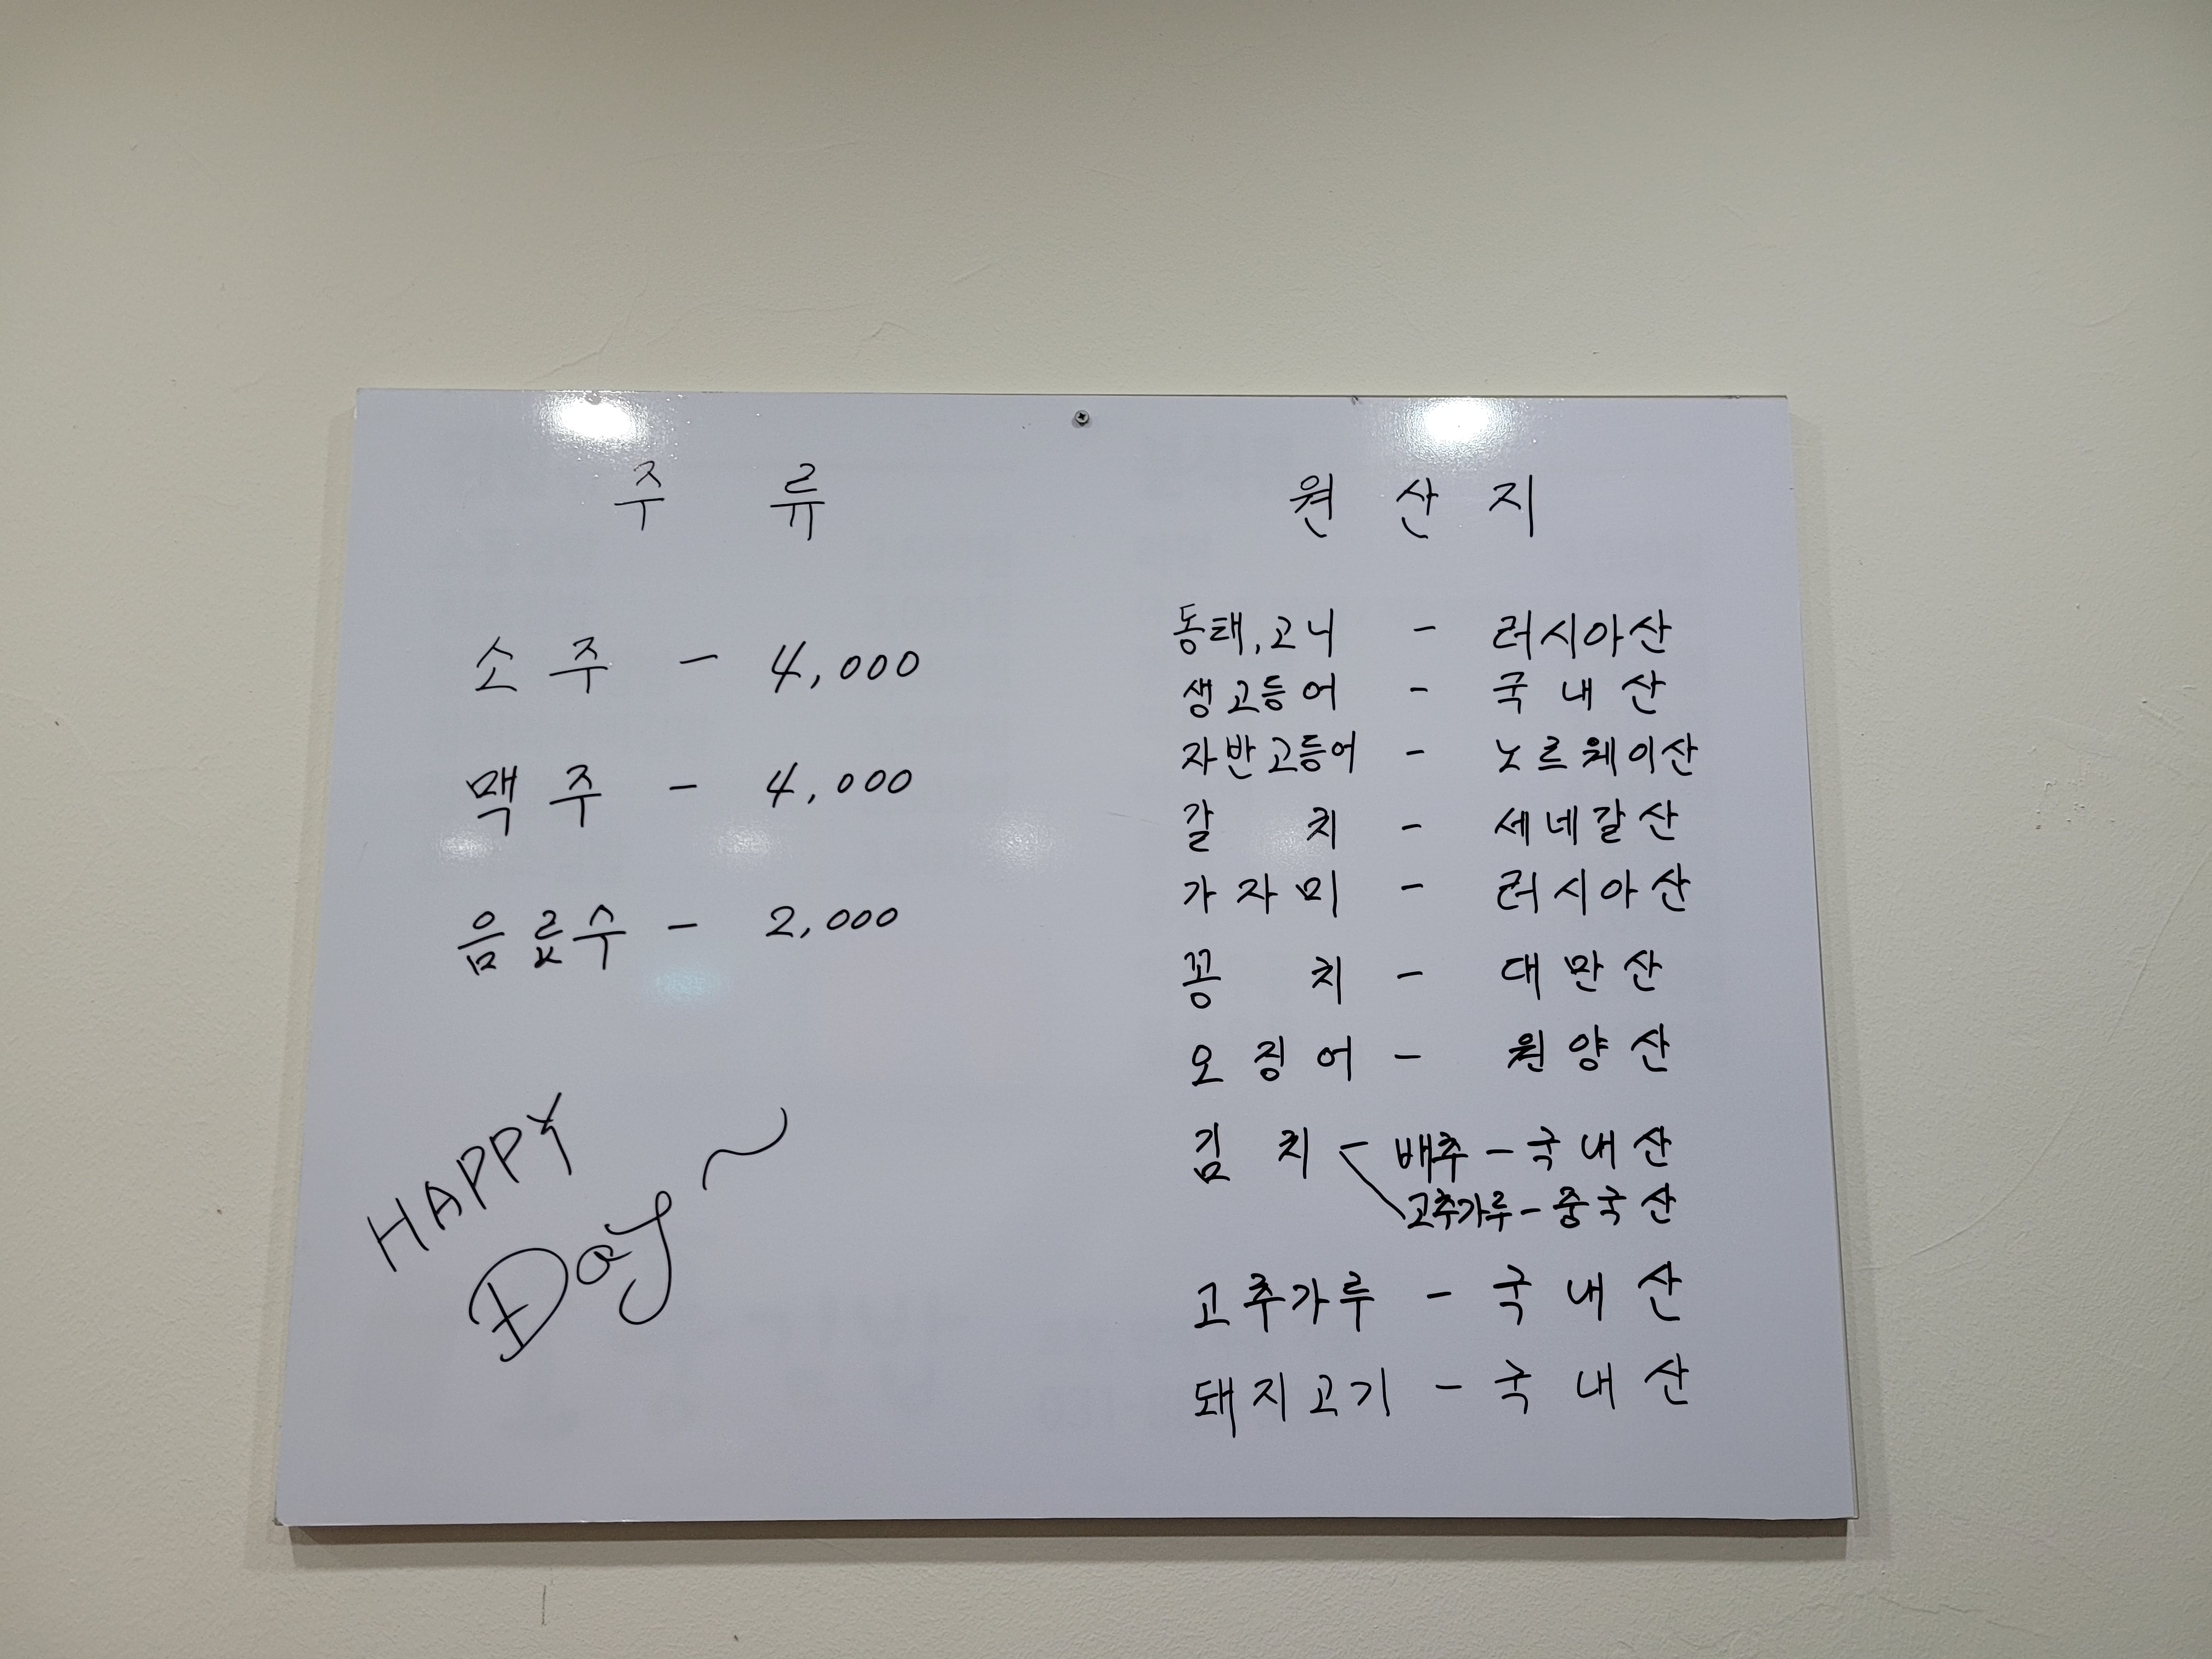 주 류
소 주 - 4,000
맥 주 - 4,000
음료수 - 2,000
HAPPY
Day ~
원 산 지
동태, 고니 - 러시아산
생고등어 - 국내산
자반고등어 - 노르웨이산
갈 치 - 세네갈산
가자미 - 러시아산
꽁 치 - 대만산
오징어 - 원양산
김 치 - 배추 - 국내산
고추가루 - 중국산
고추가루 - 국내산
돼지고기 - 국내산